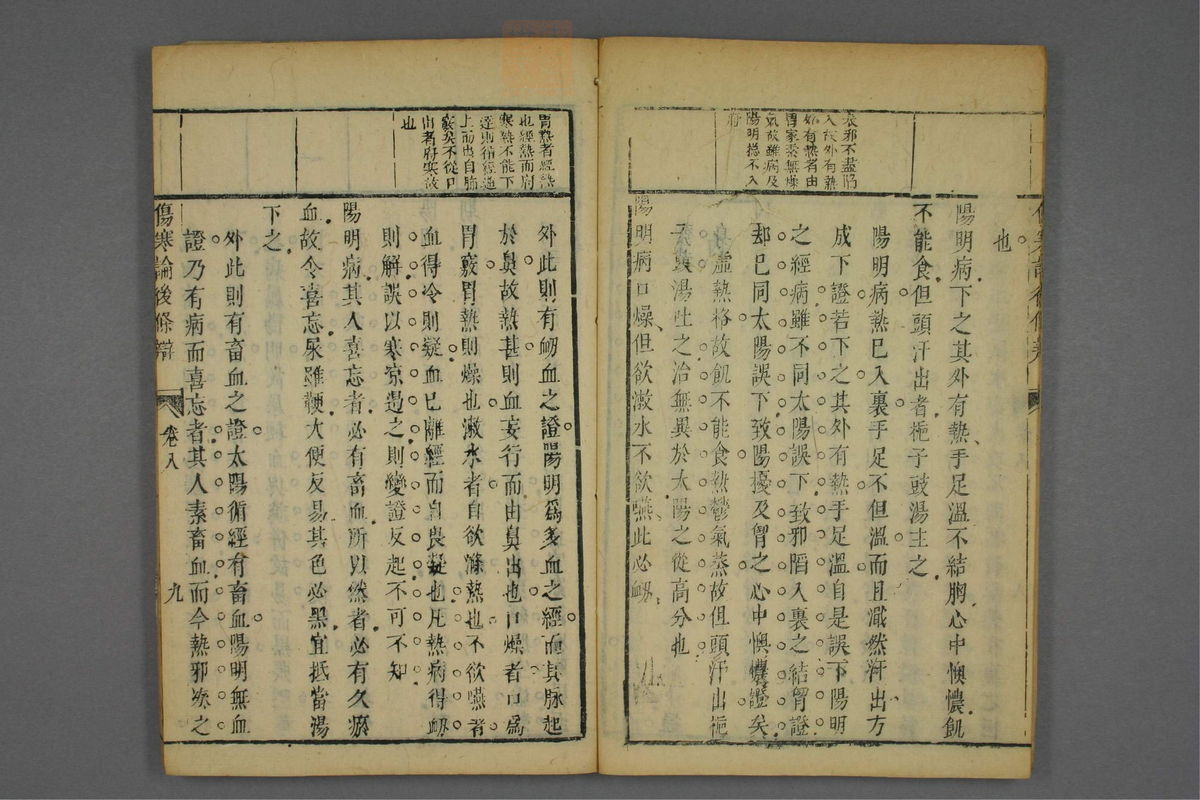 表邪不盡陷
入故外有熱
如有熱者由
胃家素無燥
氣故雖病及
陽明揔不入
府
也
陽明病下之其外有熱手足溫不結胸心中懊憹飢
不能食但頭汗出者梔子豉湯主之
陽明病熱已入裏手足不但溫而且濈然汗出方
成下證若下之其外有熱手足溫自是誤下陽明
之經病雖不同太陽誤下致邪陷入裏之結胷證
却已同太陽誤下致陽擾及胷之心中懊憹證矣
虛熱格故飢不能食熱鬱氣蒸故但頭汗出梔
湯吐之治無異於太陽之從高分也
陽明病口燥但欲漱水不欲嚥此必衂
胃熱者經熱
也經熱而府
寒熱不能下
達則循經逼
上而由自脇
妄矣不從口
出者府寒故
也
外此則有衂血之證陽明爲多血之經而其脉起
於鼻故熱甚則血妄行而由鼻出也口燥者口爲
胃竅胃熱則燥也漱水者自欲滌熱也不欲嚥者
血得冷則凝血已離經而自畏凝也凡熱病得衂
則解誤以寒凉遏之則變證反起不可不知
陽明病其人喜忘者必有畜血所以然者必有久瘀
血故令喜忘屎雖鞕大便反易其色必黑宜抵當湯
下之
外此則有畜血之證太陽循經有畜血陽明無血
證乃有病而喜忘者其人素畜血而今熱邪湊之
傷寒論後條辯
卷八
九